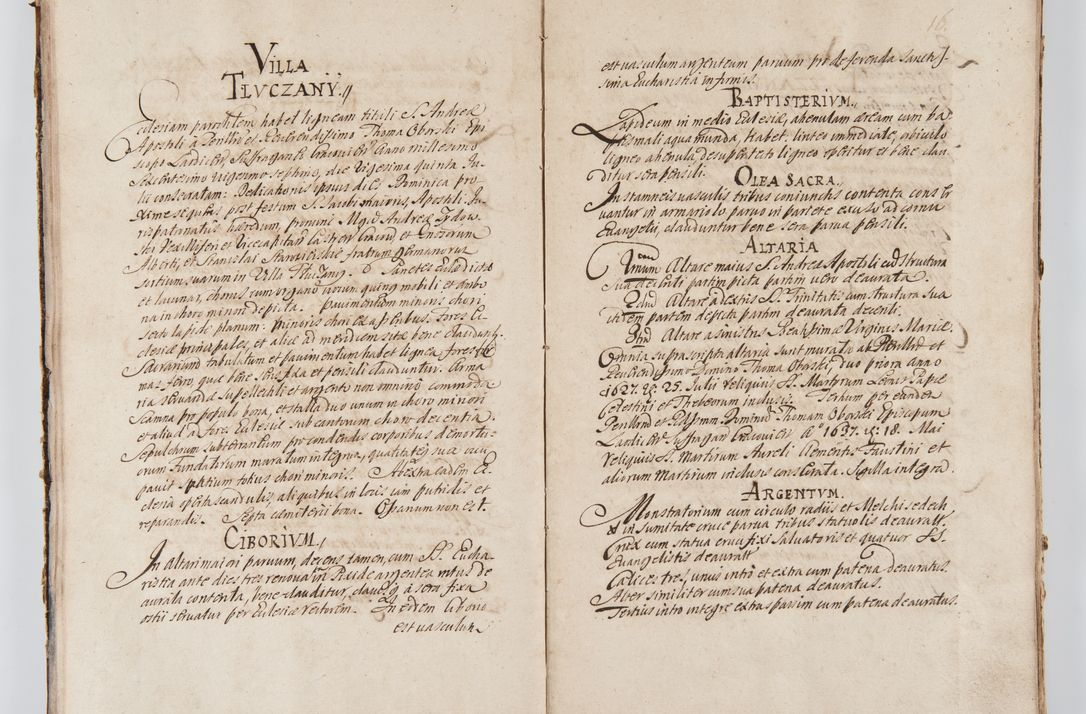 VILLA
TŁUCZANY.
Ecclesiam parochialem habet ligneam tituli S. Andreæ
Apostoli a Perillustri et Reverendissimo Thoma Oborski Epi
scopo Laodicen Suffraganeo Cracovien Anno millesimo
Sexcentesimo vigesimo septimo, die vigesima quinta Ju
lii consecratam: Dedicationis ipsius dies Dominica pro
xime sequens post festum S. Jacobi maioris, Apostoli. Ju
rispatronatus hæredum, pronunc Mgci Andreæ
ski Vexilliferi et Vicecapitanei Castren Cracovien et Gnosorum
Alberti, et Stanislai fratrum germanorum
sortium suarum in Villa Tłuczany.
et lacunar, chorus cum organo novem quinq mobili et ambo
na in choro minori depicta. Pavimentum minoris chori
secto lapide planum: minoris chori ex asseribus. Fores Ec
clesiæ principales, et aliæ ad meridiem sitæ bene clauduntur.
Sacrarium tabulatum et pavimentum habet lignea, fores
mas ferro, quæ bene sera fixa et pensili clauduntur. Arma
ria servandæ suppellectili et argento non omnino commoda
Scamna pro populo bona, et stalla duo unum in choro minori
et aliud a fores Ecclesiæ sub cantorum choro decentia.
Sepulchrum subterraneum pro condendis corporibus demortu
orum Fundatorum muratum integrum, quantitate sua occu
pavit spatium totius chori minoris. Ecc
clesia operta scandulis, aliquibus in locis cum putridis et
reparandis. Septa cæmiterii bona. Organum non est.
CIBORIVM.
In altari maiori parvum, decens tamen, cum SS. Eucha
ristia ante dies tres renovata in Pixide argentea intus de
aurata contenta, bene clauditur, clavesq a sera fixa
ostii servatur per Ecclesiæ Rectorem. In eodem ciborio
est vasculum
16
est vasculum argenteum parvum pro deferenda Sanctis
sima Eucharistia infirmis.
BAPTISTERIVM.
Lapideum in medio Ecclesiæ, ahenulam æream cum ba
ptismali aqua munda, habet, linteo immediate, orbiculo
ligneo ahenula, desuper tecto ligneo operitur et bene clau
ditur sera pensili.
OLEA SACRA.
In stanneis vasculis tribus coniunctis contenta conser
vantur in armariolo parvo in pariete exciso ad cornu
Evangelii, clauduntur bene sera parva pensili.
ALTARIA
Unum Altare maius S. Andreæ Apostoli cum structura
sua decenti partim picta partim vero deaurata.
2dum Altare a dextris S. Trinitatis cum structura sua
itidem partem depicta partim deaurata decenti.
3tium Altare a sinistris Beatissimæ Virginis Mariæ.
Omnia supra scripta altaria sunt murata ab Perillri et
Reverendissimo Domino Thoma Oborski, duo priora anno
1627. die 25. Julii reliquiis SS. Martyrum Leonis Papæ
Celestini et Thebeorum inclusis. Tertium per eundem
Perillrem et Rdissimum Dominum Thomam Oborski Episcopum
Laodicen Suffragan Cracovien Ao 1637. die 18. Mai
reliquiis S. Martirum Aureli Clementis Faustini et
aliorum Martirum inclusis consecrata. Sigilla integra.
ARGENTVM.
Monstratorium cum circulo radiis et Melchisedech
et in sumitate cruce parva tribus statuolis deaurat.
Crux cum statua crucifixi Salvatoris et quatuor SS.
Evangelistis deaurat.
Calices tres, unus intro et extra cum patena deauratus.
Alter similiter cum sua patena deauratus.
Tertius intro integre extra sparsim cum patena deauratus.